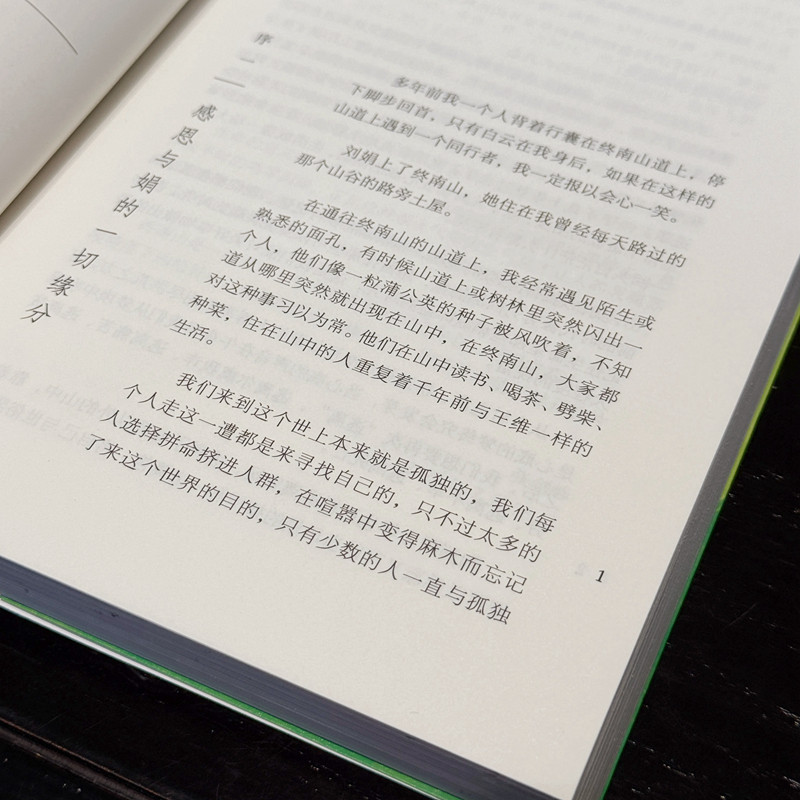 序一
感恩与娟的一切缘分
多年前我一个人背着行囊在终南山道上，停
下脚步回首，只有白云在我身后，如果在这样的
山道上遇到一个同行者，我一定报以会心一笑。
刘娟上了终南山，她住在我曾经每天路过的
那个山谷的路旁土屋。
在通往终南山的山道上，我经常遇见陌生或
熟悉的面孔，有时候山道上或树林里突然闪出一
个人，他们像一粒蒲公英的种子被风吹着，不知
道从哪里突然就出现在山中，在终南山，大家都
对这种事习以为常。他们在山中读书、喝茶、劈柴、
种菜，住在山中的人重复着千年前与王维一样的
生活。
我们来到这个世上本来就是孤独的，我们每
个人走这一遭都是来寻找自己的，只不过太多的
人选择拼命挤进人群，在喧嚣中变得麻木而忘记
了来这个世界的目的，只有少数的人一直与孤独
1